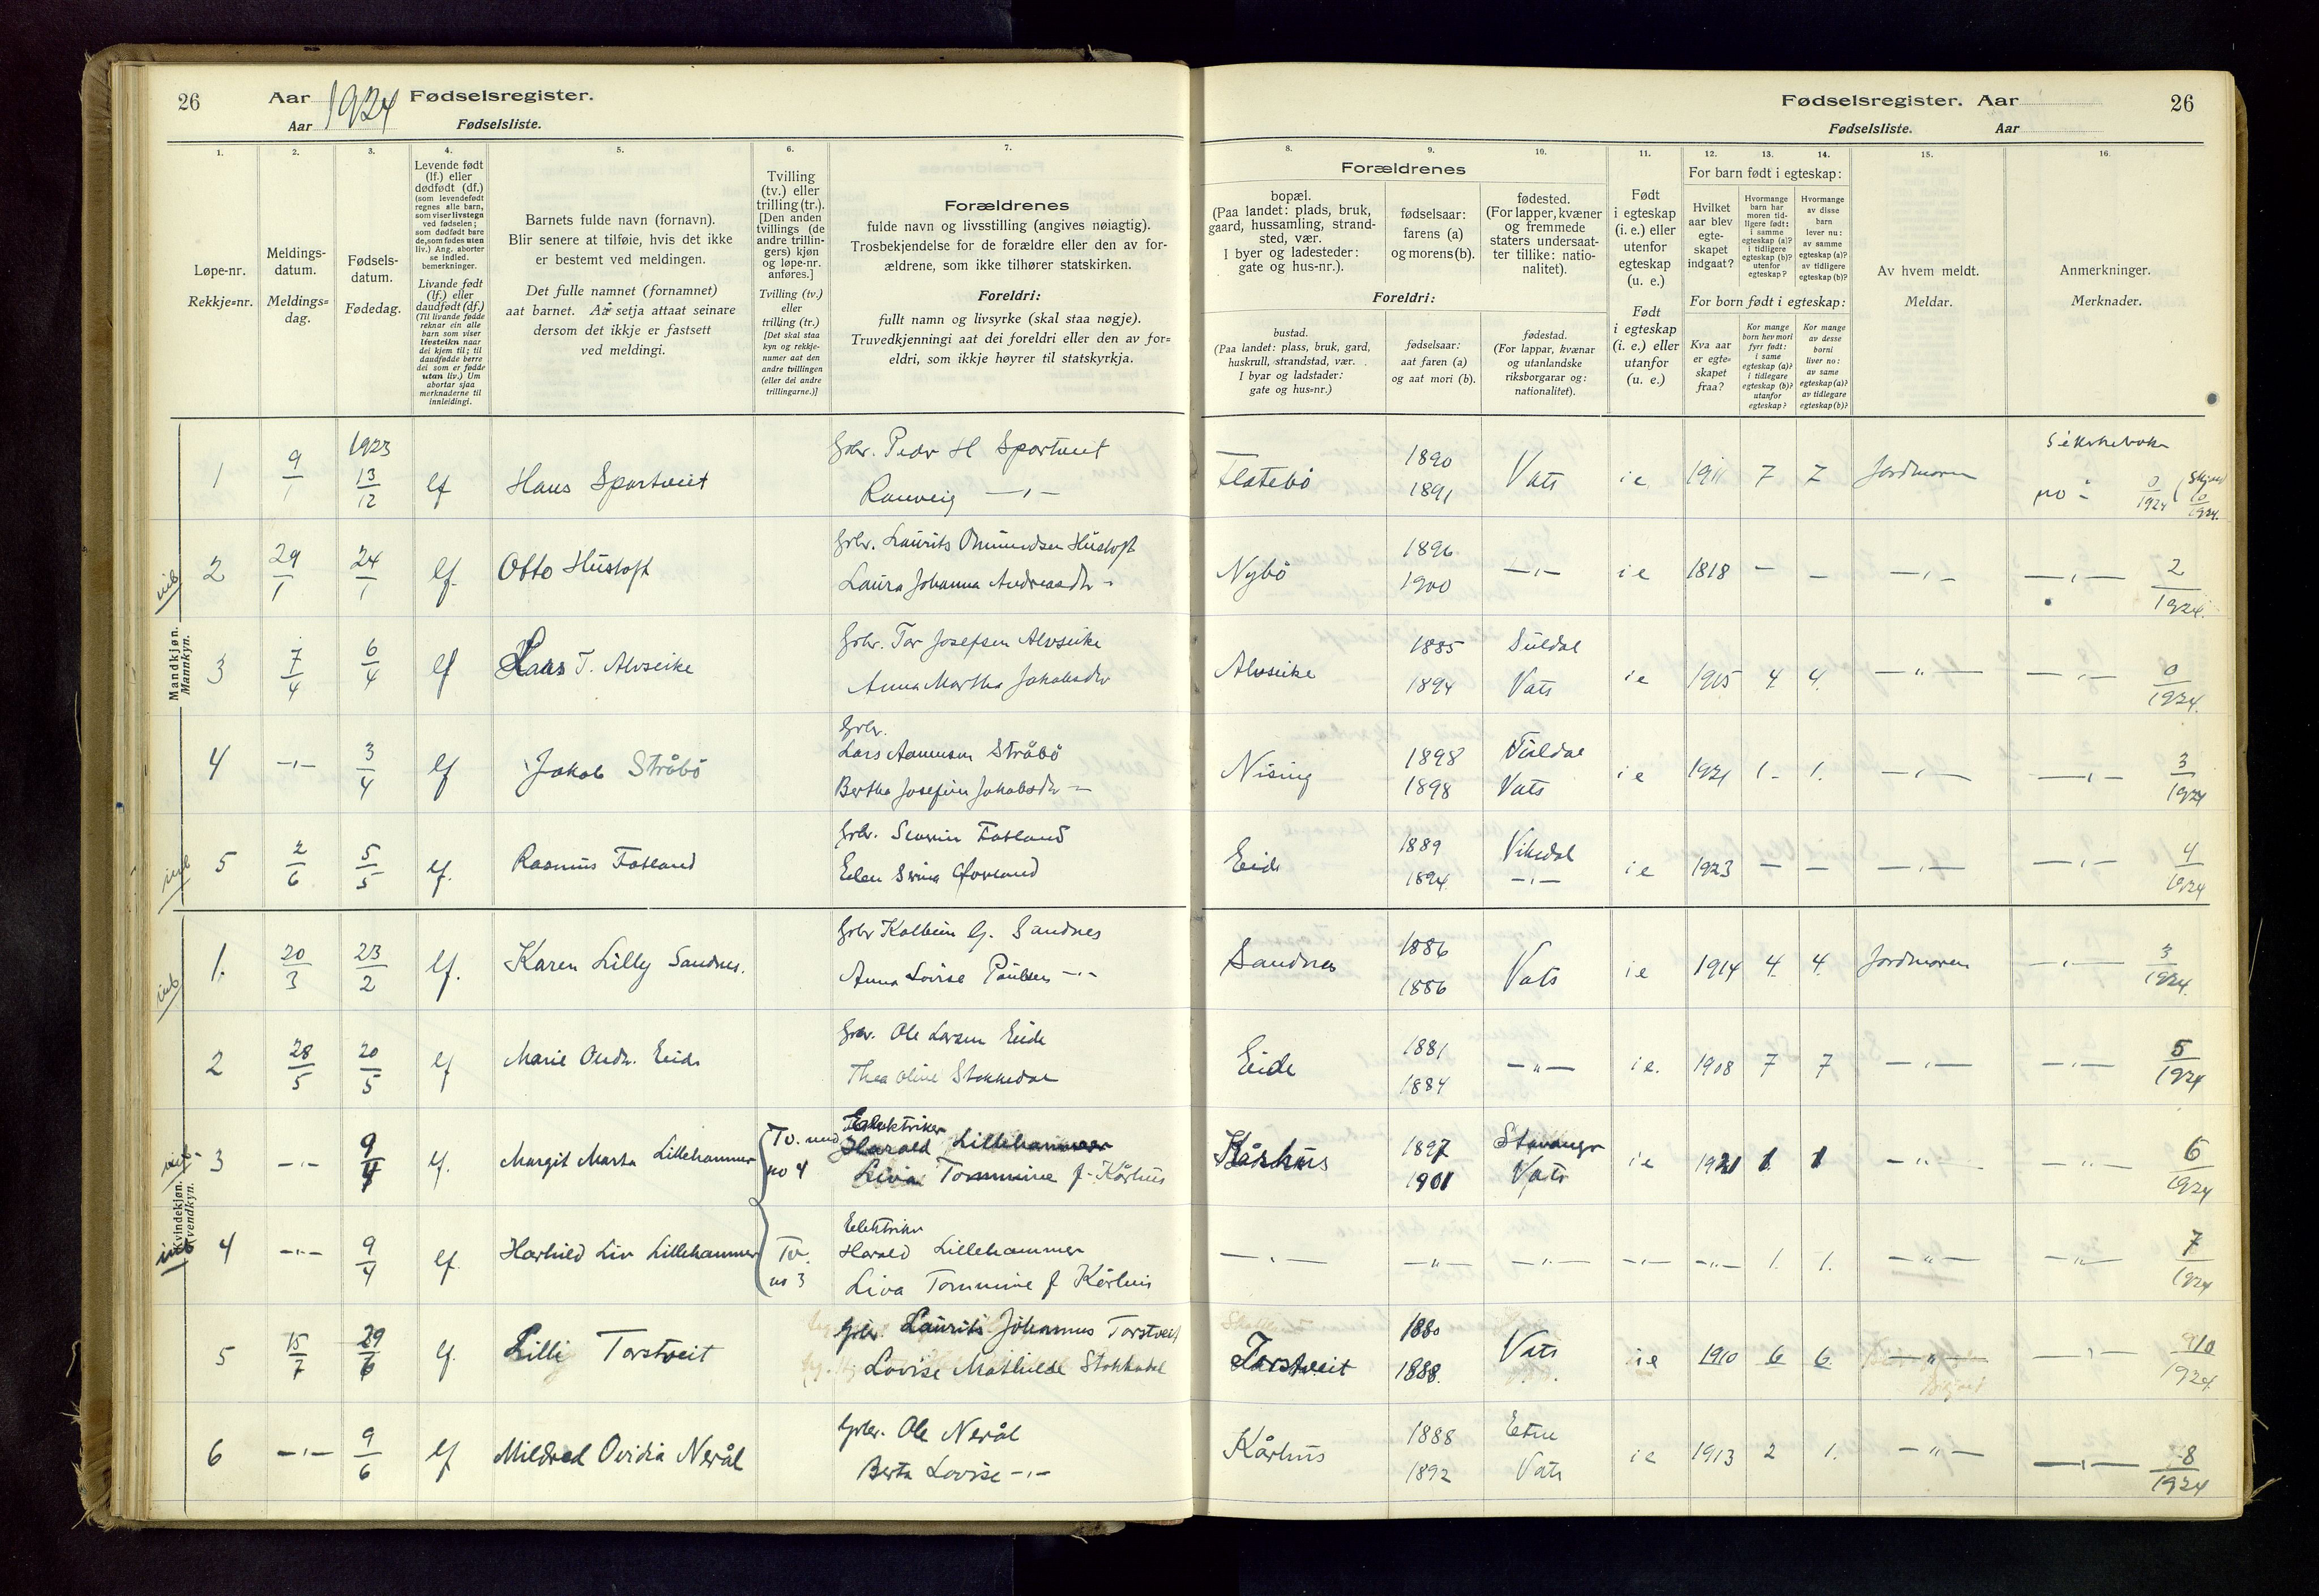 26 Aar 1924 Fødselsregister.
Aar Fødselsliste.
Fødselsregister. Aar 26
Fødselsliste. Aar
1. 2. 3. 4. 5. 6. 7. 8. 9. 10. 11. 12. 13. 14. 15. 16.
Løpe-nr.
Rekkje=nr.
Meldings-
datum.
Meldings=
dag.
Fødsels-
datum.
Fødedag.
Levende født
(lf.) eller
dødfødt (df.)
(som levendefødt
regnes alle barn,
som viser livstegn
ved fødselen;
som dødfødt bare
de, som fødes uten
liv.) Ang. aborter
se indled.
bemerkninger.
Livande født
(lf.) eller
daudfødt (df.)
(Til livande fødde
reknar ein alle
barn som viser
livsteikn naar
dei kjem til; til
daudfødde berre
dei som er fødde
utan liv.) Um
abortar sjaa
merknaderne til
innleidingi.
Barnets fulde navn (fornavn).
Blir senere at tilføie, hvis det ikke
er bestemt ved meldingen.
Det fulle namnet (fornamnet)
aat barnet. Aa setja attaat seinare
dersom det ikkje er fastsett
ved meldingi.
Tvilling
(tv.) eller
trilling (tr.).
[Den anden
tvillings (de
andre trillin-
gers) kjøn
og løpe-nr.
anføres.]
Tvilling (tv.)
eller
trilling (tr.)
[Det skal staa
kyn og rekkje-
numer aat den
andre tvillingen
(eller dei andre
trillingarne.)]
Forældrenes
fulde navn og livsstilling (angives nøiagtig).
Trosbekjendelse for de forældre eller den av for-
ældrene, som ikke tilhører statskirken.
Foreldri:
fullt namn og livsyrke (skal staa nøgje).
Truvedkjenningi aat dei foreldri eller den av for=
eldri, som ikkje høyrer til statskyrkja.
Forældrenes
bopæl.
(Paa landet: plads, bruk,
gaard, hussamling, strand-
sted, vær.
I byer og ladesteder:
gate og hus-nr.).
fødselsaar:
farens (a)
og morens (b).
fødested.
(For lapper, kvæner
og fremmede
staters undersaat-
ter tillike: natio-
nalitet).
Foreldri:
bustad.
(Paa landet: plass, bruk, gard,
huskrull, strandstad, vær.
I byar og ladstader:
gate og hus=nr.)
fødselsaar:
aat faren (a)
og aat mori (b).
fødestad.
(For lappar, kvænar
og utanlandske
riksborgarar og:
nationalitet).
Født
i egteskap
(i. e.) eller
utenfor
egteskap
(u. e.)
Født
i egteskap
(i. e.) eller
utanfor
(u. e.)
For barn født i egteskap:
Hvilket
aar blev
egte-
skapet
indgaat?
Hvormange
barn har
moren tid-
ligere født:
i samme
egteskap (a)?
i tidligere
egteskap (b)?
utenfor
egteskap?
Hvormange
av disse
barn
lever nu:
av samme
egteskap (a)?
av tidligere
egteskap (b)?
For born født i egteskap:
Kva aar
er egte=
skapet
fraa?
Kor mange
born hev mori
fyrr født:
i same
egteskap (a)?
i tidlegare
egteskap (b)?
utanfor
egteskap?
Kor mange
av desse
borni
liver no:
av same
egteskap (a)?
av tidlegare
egteskap (b)?
Av hvem meldt.
Meldar.
Anmerkninger.
Merknader.
Mannkjøn.
Mannkyn.
1 9/1 1923 13/12 lf Hans Sportveit
Grbr. Peder H Sportveit
Ranveig —"—
Flatebö 1890 1891 Vats i e 1911 7 7 Jordmoren
0/1924
2 29/1 24/1 lf. Otto Hustoft
Grbr. Laurits Omundsen Hustoft
Laura Johanna Andreasdtr —"—
Nybö 1896 1900 —"— i e 1818 — — —"— —"— 2/1924
3 7/4 6/4 lf Lars T. Alvseike
Grbr. Tor Josefsen Alvseike
Anna Martha Jakobsdtr
Alvseike 1885 1894 Suldal Vats i e 1915 4 4. —"— —"— 0/1924.
4 —"— 3/4 lf Jakob Stråbö
Grbr.
Lars Aamunsen Stråbö
Bertha Josefine Jakobsdtr —"—
Nising 1898 1898 Suldal Vats i e 1921 1. 1. —"— —"— 3/1924
5 2/6 5/5 lf. Rasmus Fatland
Grbr. Severin Fatland
Elen Serina
Eide 1889 1894 Vikedal —"— i e 1923 — — —"— —"— 4/1924
Kvindekjøn.
Kvendkyn.
1. 20/3 23/2 lf. Karen Lilly Sandnes.
Grbr Kolbein G. Sandnes
Anna Lovise Paulsen —"—
Sandnes 1886 1886 Vats i e 1914 4. 4. Jordmoren —"— 3/1924.
2 28/5 20/5 lf Marie Eide
Grbr. Ole Larsen Eide
Thea Oline Stokkedal
Eide 1881 1884 —"— i e. 1908 7 7 —"— —"— 5/1924
3 —"— 9/4 lf. Margit Marta Lillehammer Tv. med no 4
Elektriker
Harald Lillehammer
Liva Tommine f. Kårhus
Kårhus 1897 1901 Stavanger Vats i e 1921 1 1 —"— —"— 6/1924
4 —"— 9/4 lf. Harhild Liv Lillehammer Tv. no 3
Elektriker
Harald Lillehammer
Liva Tommine f Kårhus
—"— —"— —"— —"— —"— 1. 1. —"— —"— 7/1924
5 15/7 29/6 lf. Lilli Torstveit
Grbr. Laurits Johannes Torstveit
Lovise Mathilde Stokkedal
Torstveit 1880 1888. Vats i e 1910 6 6 —"— —"— 10/1924
6 —"— 9/6 lf Mildred Ovidia Nerål
Grbr. Ole Nerål
Berta Lovise —"—
Kårhus 1888 1892 Etne Vats i e 1913 2 1. —"— —"— 8/1924